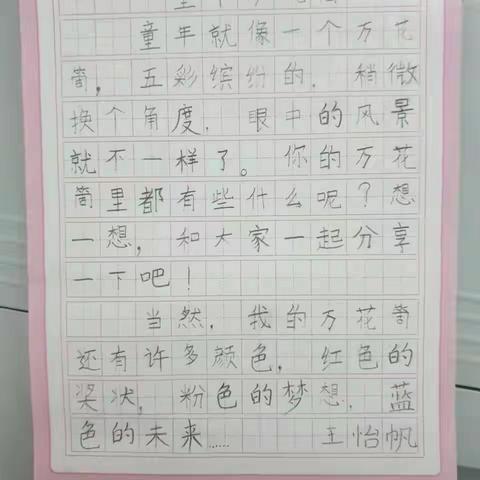 童年就像一个万花
筒，五彩缤纷的，稍微
换个角度，眼中的风景
就不一样了。你的万花
筒里都有些什么呢？想
一想，和大家一起分享
一下吧！
当然，我的万花筒
还有许多颜色，红色的
奖状，粉色的梦想，蓝
色的未来…… 王怡帆